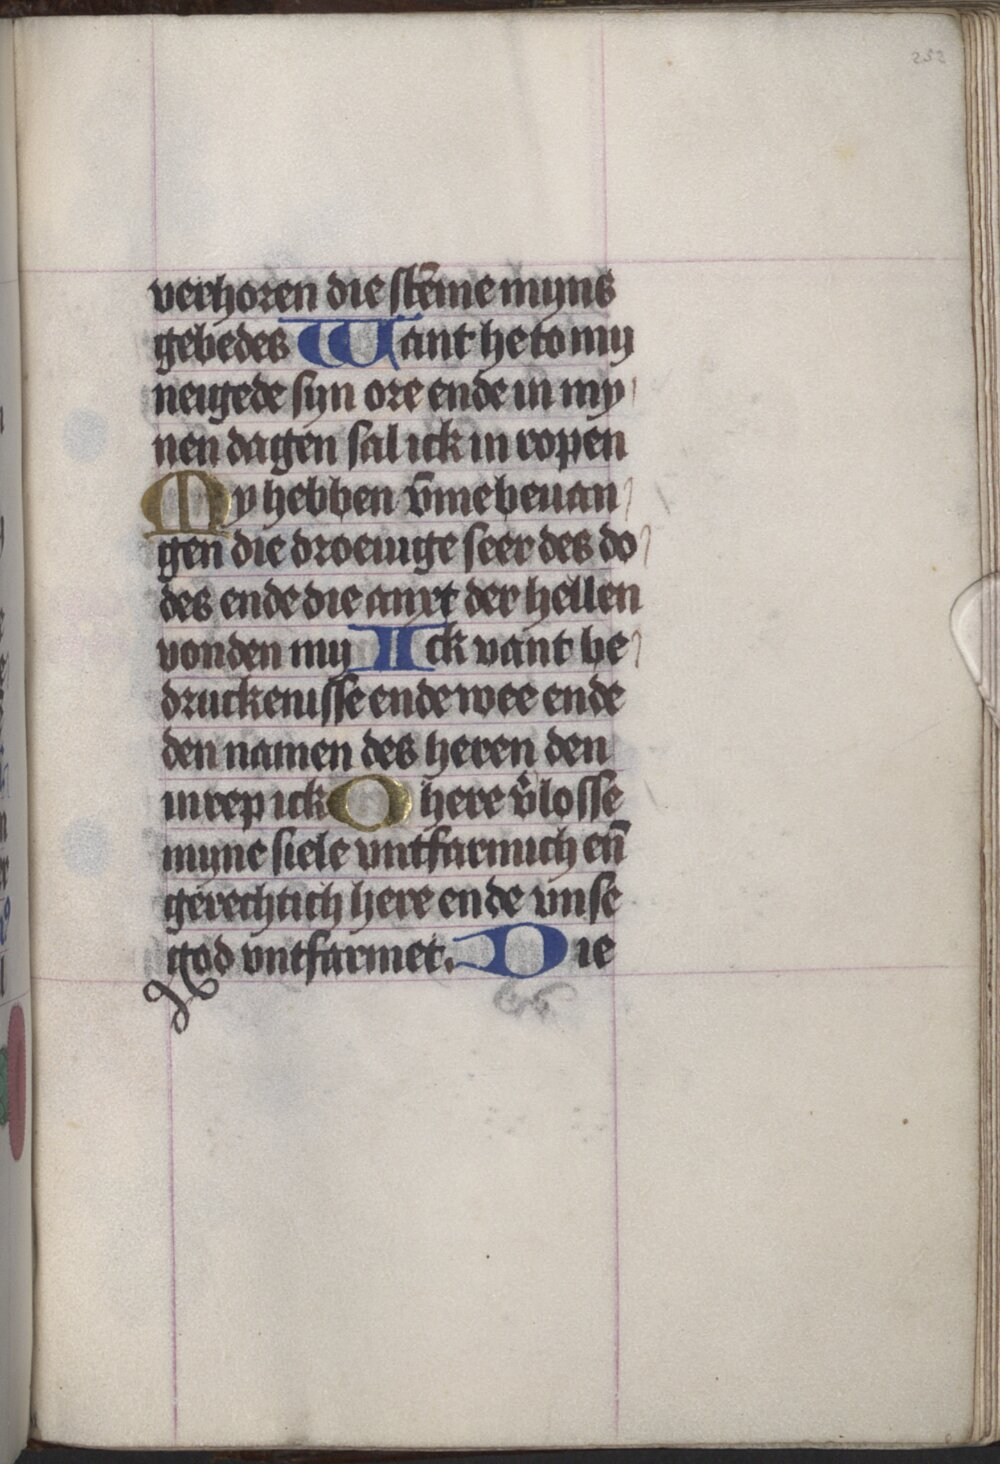 252
verhoren die stēme myns
gebedes Want he to my
neigede syn ore ende in my
nen dagen sal ick in ropen
My hebben v̄mebeuan
gen die droeuige seer des do
des ende die anxt der hellen
vonden my Ick vant be
druckenisse ende wee ende
den namen des heren den
inrep ick O here v̄losse
myne siele vntfarmich en̄
gerechtich here ende vnse
god vntfarmet. Die